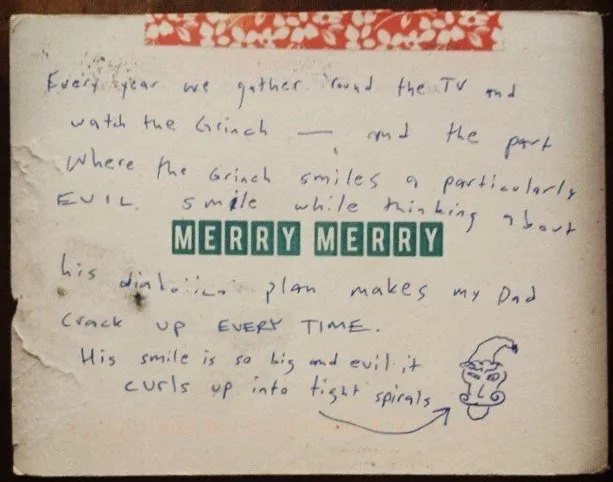 Every year we gather 'round the TV and
watch the Grinch — and the part
where the Grinch smiles a particularly
EVIL smile while thinking about
MERRY MERRY
his diabolical plan makes my Dad
crack up EVERY TIME.
His smile is so big and evil it
curls up into tight spirals